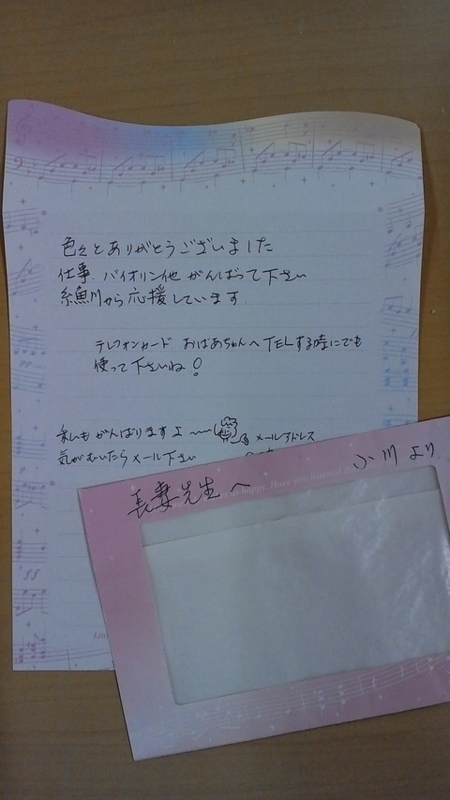 色々とありがとうございました
仕事、バイオリン他 がんばって下さい
糸魚川から応援しています
テレフォンカード おばあちゃんへTELする時にでも
使って下さいね!
私もがんばりますよ〜 メールアドレス
気がむいたらメール下さい
長妻先生へ
小川より